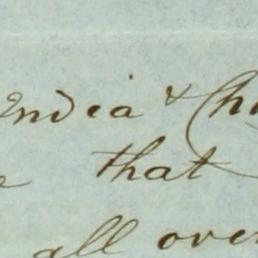 India & Chi
that
all over